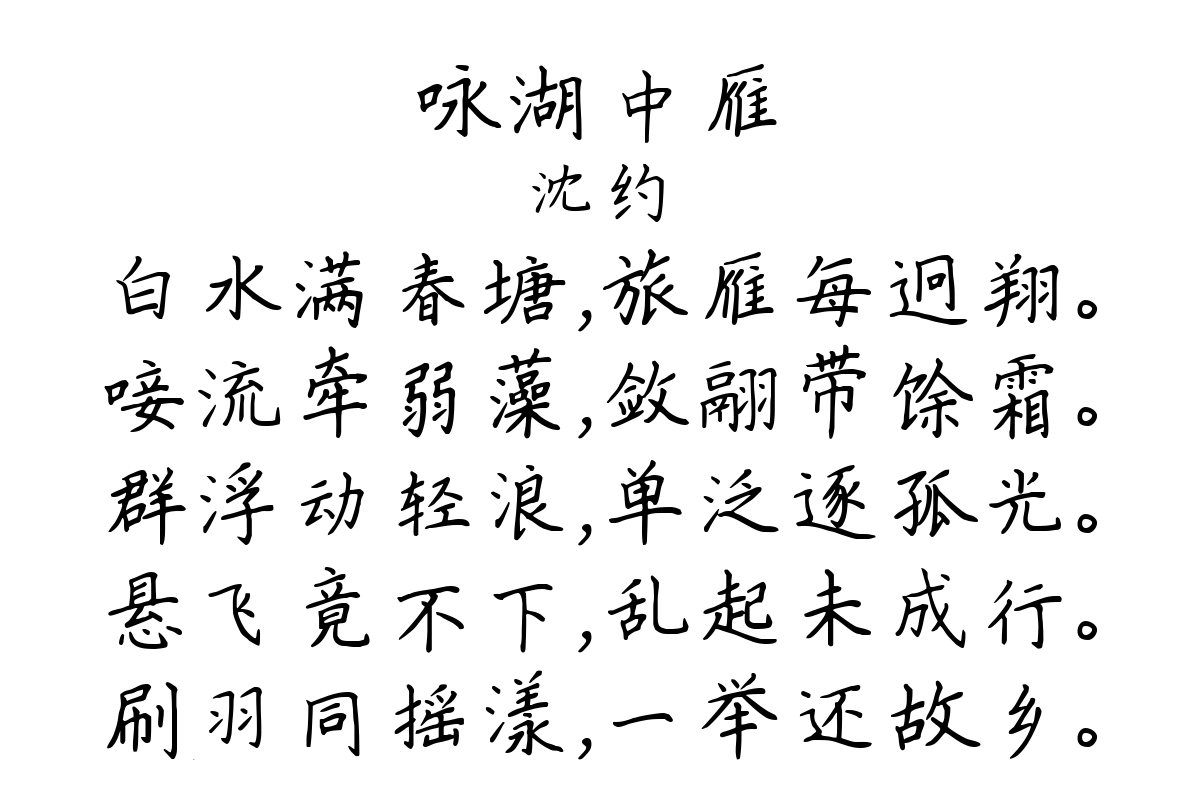 咏湖中雁
沈约
白水满春塘,旅雁每迥翔。
唼流牵弱藻,敛翮带馀霜。
群浮动轻浪,单泛逐孤光。
悬飞竟不下,乱起未成行。
刷羽同摇漾,一举还故乡。